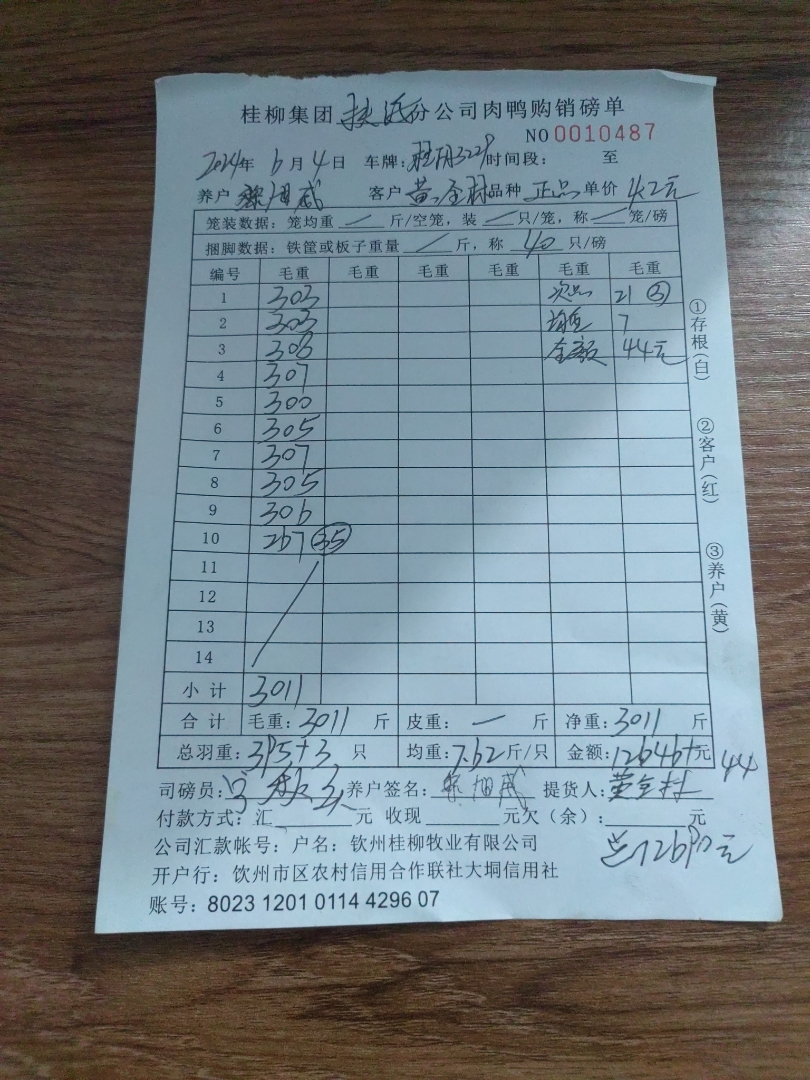 桂柳集团 分公司肉鸭购销磅单
NO 0010487
2024年 6月 4日 车牌: 3229 时间段: 至
养户 客户 黄全林 品种 正品 单价 4.2元
笼装数据: 笼均重 / 斤/空笼, 装 / 只/笼, 称 / 笼/磅
捆脚数据: 铁筐或板子重量 / 斤, 称 40 只/磅
编号 毛重 毛重 毛重 毛重 毛重 毛重
1 303 次品 21 ③
2 303 均重 7
3 308 金额 44元
4 307
5 300
6 305
7 307
8 305
9 306
10 267 35
11
12
13
14
小计 3011
合计 毛重: 3011 斤 皮重: — 斤 净重: 3011 斤
总羽重: 395+3 只 均重: 7.62 斤/只 金额: 12646+元 44
司磅员: 养户签名: 提货人: 黄全林
付款方式: 汇 元 收现 元欠(余): 元
公司汇款帐号: 户名: 钦州桂柳牧业有限公司
总12690元
开户行: 钦州市区农村信用合作联社大垌信用社
账号: 8023 1201 0114 4296 07
①存根(白)
②客户(红)
③养户(黄)